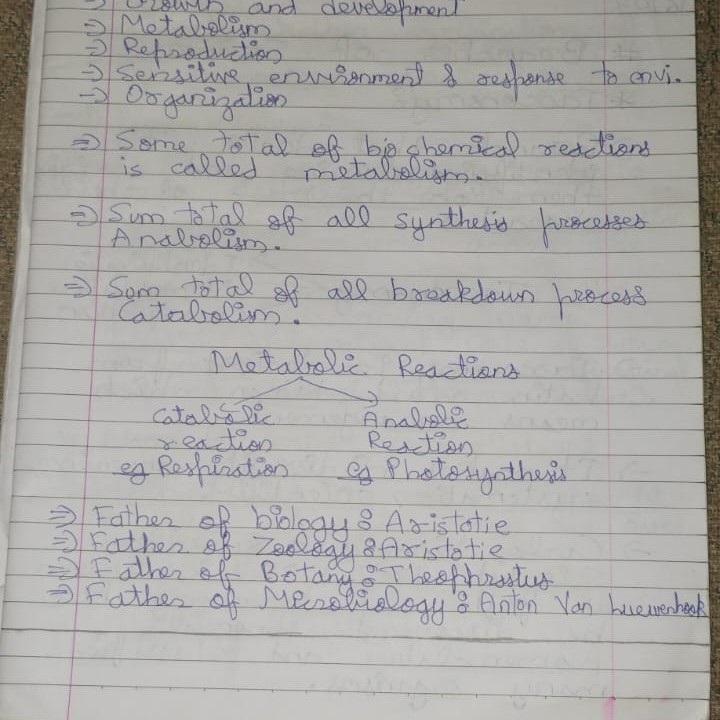 ⇒ Growth and development
⇒ Metabolism
⇒ Reproduction
⇒ Sensitive environment & response to envi.
⇒ Organization
⇒ Some total of bio chemical reactions
is called metabolism.
⇒ Sum total of all synthesis processes
Anabolism.
⇒ Sum total of all breakdown process
Catabolism.
Metabolic Reactions
Catabolic Anabolic
reaction Reaction
eg Respiration eg Photosynthesis
⇒ Father of biology : Aristotie
⇒ Father of Zoology : Aristotie
⇒ Father of Botany : Theophrastus
⇒ Father of Microbiology : Anton Van Luewenhook